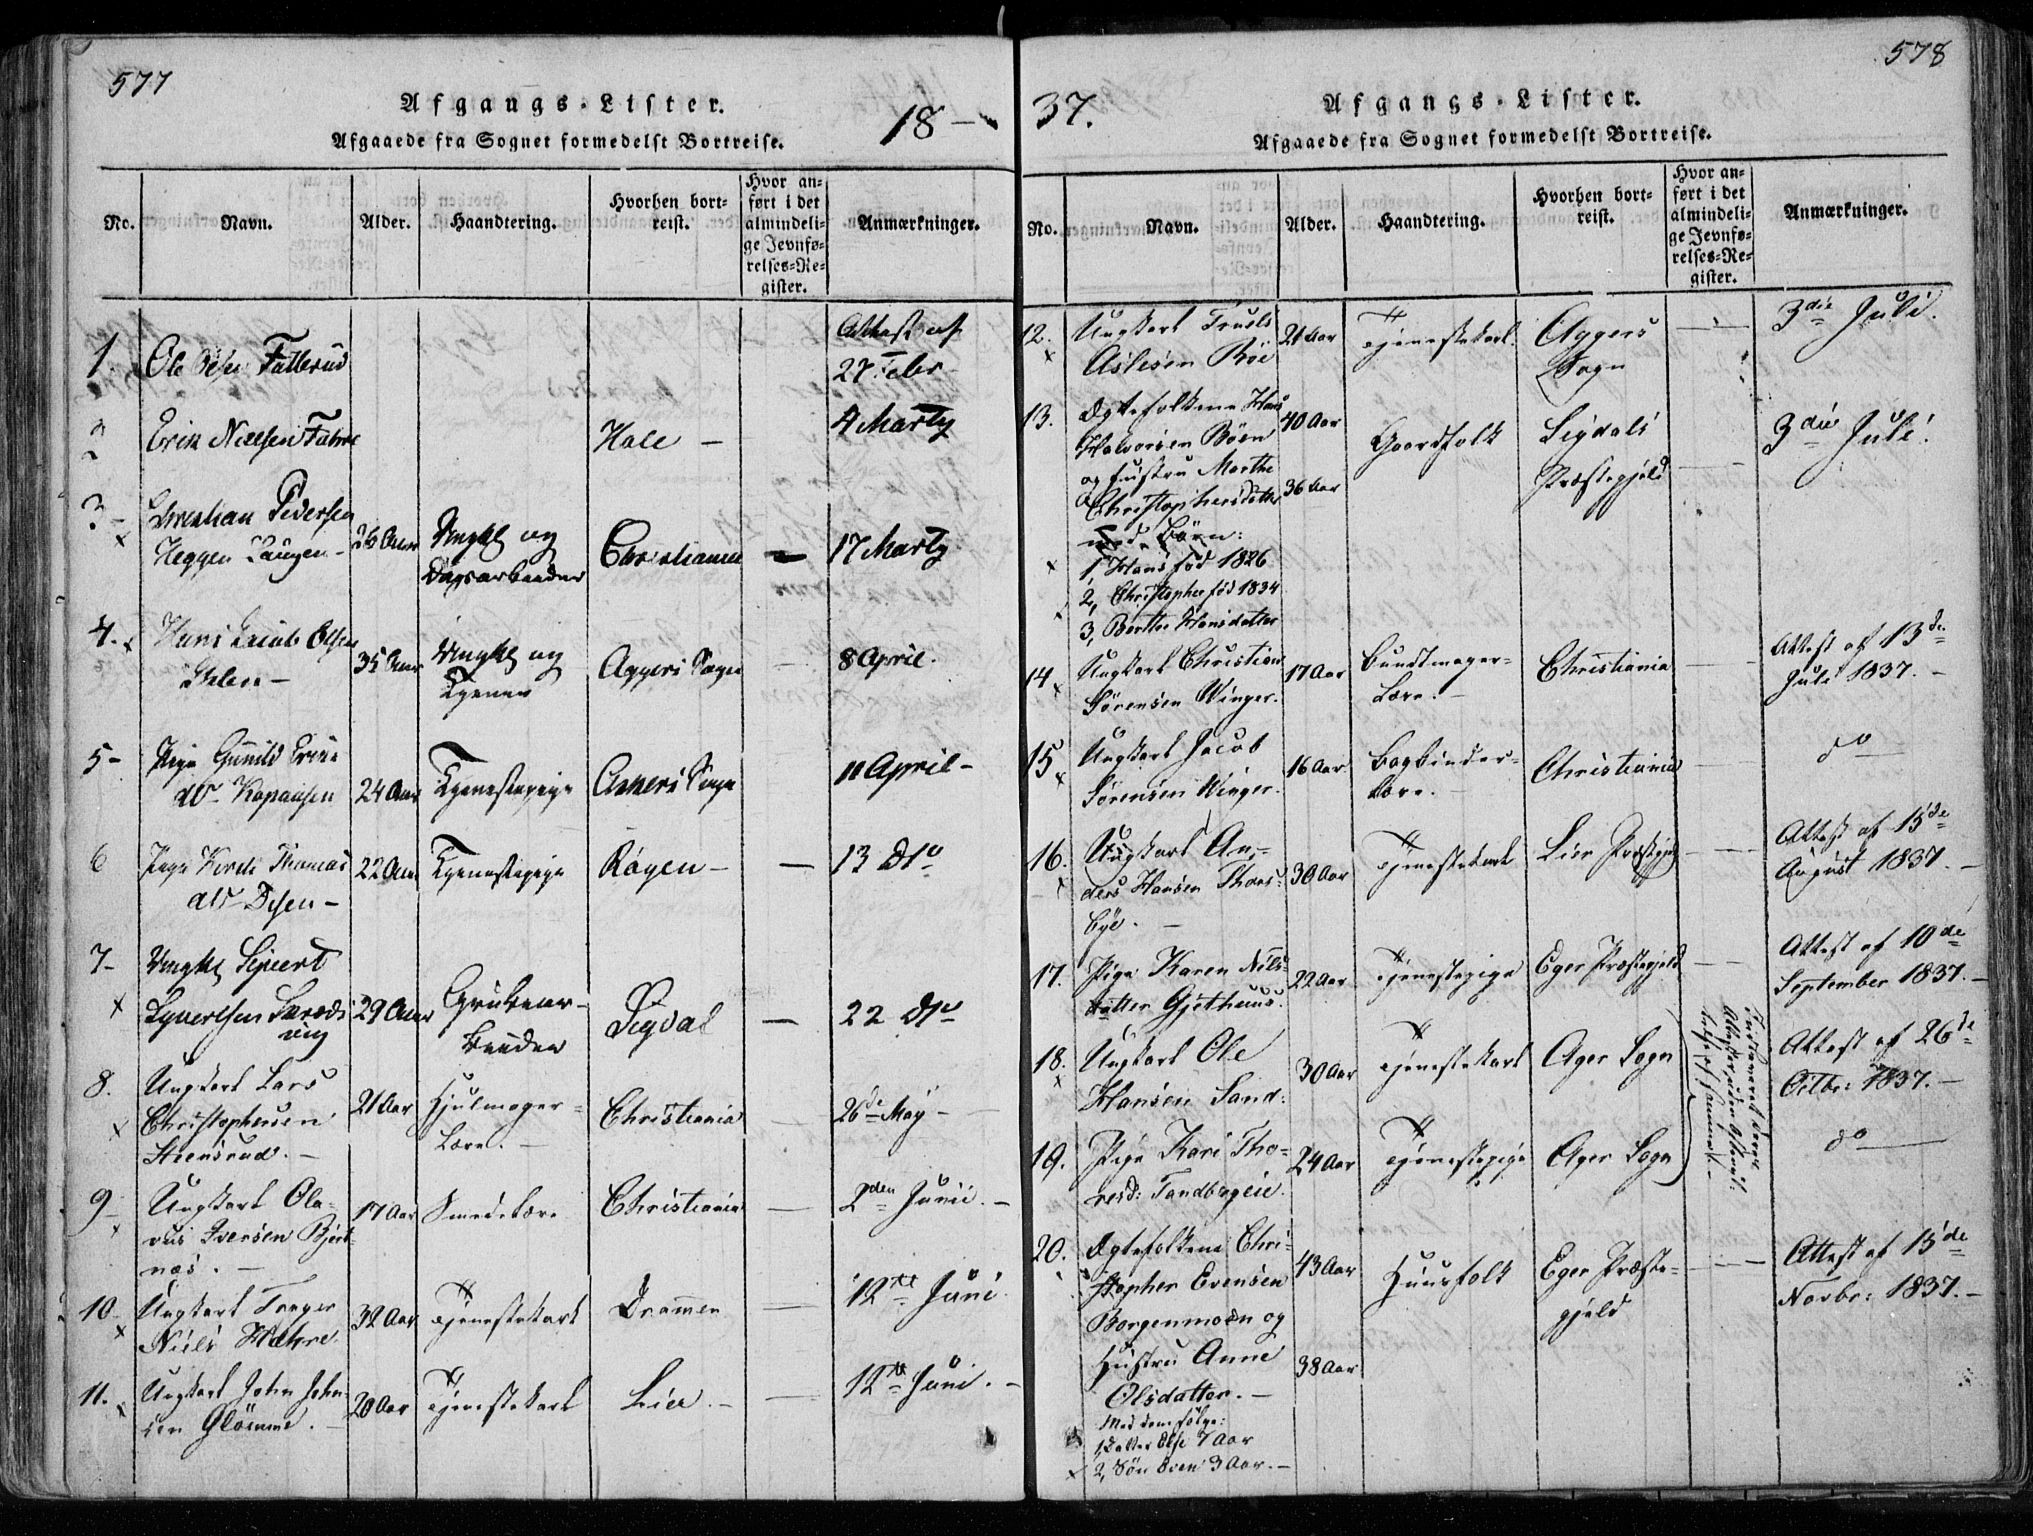 577
Afgangs-Lister.
18-
Afgaaede fra Sognet formedelst Bortreise.
No.
Navn.
Alder.
Haandtering.
Hvorhen bort=
reist.
Hvor an=
ført i det
almindeli=
ge Jevnfø=
relses=Re=
gister.
Anmærkninger.
1.
Ole Olsen Fallerud
Attest af
27 Febr
2
Erik Nielsen
Hole -
4 Marty
3-
Christian Pedersen
Heggen
26 Aar
Ungkl og
Dagsarbeider
Christiania
17 Marty
4.
Hans Jacob Olsen
Ihlen -
35 Aar
Ungkl og
Tjener
Aggers Sogn
8 April.
5-
Pige Gunild
24 Aar
Tjenestepige
Askers Sogn
11 April -
6
Pige Thomas
22 Aar
Tjenestepige
Røgen -
13 Dto
7-
Ungkl Sivert
Syvertsen
29 Aar
Grubear-
beider
Sigdal
22 Dto
8.
Ungkarl Lars
Christophersen
Steensrud. -
21 Aar
Hjulmager-
Lære. -
Christiania
26de May -
9-
Ungkarl Ola-
vus Iversen Bjert-
næs. -
17 Aar
Smedelære
Christiania
2den Junii. -
10.
Ungkarl Torger
Niels Hahre.
32 Aar
Tjenestekarl
Drammen
12te Juni.
11.
Ungkarl John John-
sen Glömme. -
20 Aar
Tjenestekarl
Lier. -
12te Juni. -
578
37.
Afgangs-Lister.
Afgaaede fra Sognet formedelst Bortreise.
No.
Navn.
Alder.
Haandtering.
Hvorhen bort=
reist.
Hvor an=
ført i det
almindeli=
ge Jevnfø=
relses=Re=
gister.
Anmærkninger.
12.
Ungkarl Truels
Aslesen Böe
21 Aar
Tjenestekarl.
Aggers
Sogn
3die Juli.
13.
Ægtefolkene Hans
Halvorsen Böen
og Hustru Marthe
Christophersdatter
med Börn:
1, Hans föd 1826
2, Christopher föd 1834
3, Berthe Hansdatter
40 Aar
36 Aar
Gaardfolk
Sigdals
Præstegjeld
3die Juli.
14.
Ungkarl Christian
Sörensen Winger.
17 Aar
Bundtmager-
Lære. -
Christiania
Attest af 13de
Juli 1837. -
15
Ungkarl Jacob
Sörensen Winger.
16 Aar
Bogbinder-
Lære. -
Christiania
do
16.
Ungkarl An-
ders Hansen Thors-
bye. -
30 Aar
Tjenestekarl
Lier Præstegjeld
Attest af 15de
August 1837. -
17.
Pige Karen Nils-
datter Gjethuus.
22 Aar
Tjenestepige
Eger Præstegjeld
Attest af 10de
September 1837. -
18.
Ungkarl Ole
Hansen Sand:
30 Aar
Tjenestekarl
Ager Sogn
Attest af 26de
Octbr: 1837. -
19.
Pige Kari Tho-
resd: Tandbergeie.
24 Aar
Tjenestepige
Ager Sogn
do
20.
Ægtefolkene Chri-
stopher Evensen
Borgenmoen og
Hustru Anne
Olsdatter. -
Med dem fölge:
1, Datter Else 7 Aar
2, Sön Even 3 Aar. -
43 Aar
38 Aar
Huusfolk
Eger Præste-
gjeld
Attest af 15de
Novbr: 1837. -